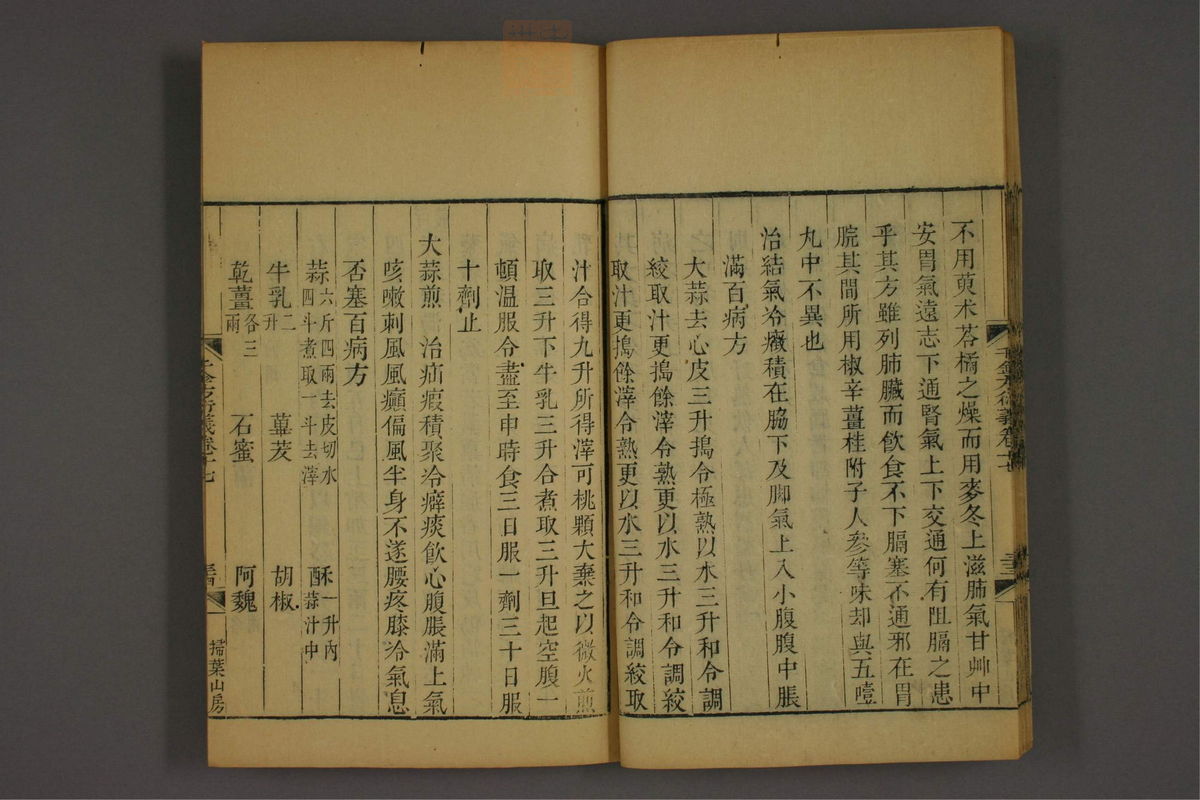 不用萸术苓橘之燥而用麥冬上滋肺氣甘艸中
安胃氣遠志下通腎氣上下交通何有阻膈之患
乎其方雖列肺臟而飲食不下膈塞不通邪在胃
脘其間所用椒辛薑桂附子人參等味却與五噎
丸中不異也
治結氣冷癥積在脇下及脚氣上入小腹腹中脹
滿百病方
大蒜去心皮三升搗令極熟以水三升和令調
絞取汁更搗餘滓令熟更以水三升和令調絞
取汁更搗餘滓令熟更以水三升和令調絞取
汁合得九升所得滓可桃顆大棄之以微火煎
取三升下牛乳三升合煮取三升旦起空腹一
頓温服令盡至申時食三日服一劑三十日服
十劑止
大蒜煎 治疝瘕積聚冷癖痰飲心腹脹滿上氣
咳嗽刺風風癲偏風半身不遂腰疼膝冷氣息
否塞百病方
蒜六斤四兩去皮切水四斗煮取一斗去滓 酥一升內蒜汁中
牛乳二升 蓽茇 胡椒
乾薑各三兩 石蜜 阿魏
千金方衍義卷十七
掃葉山房